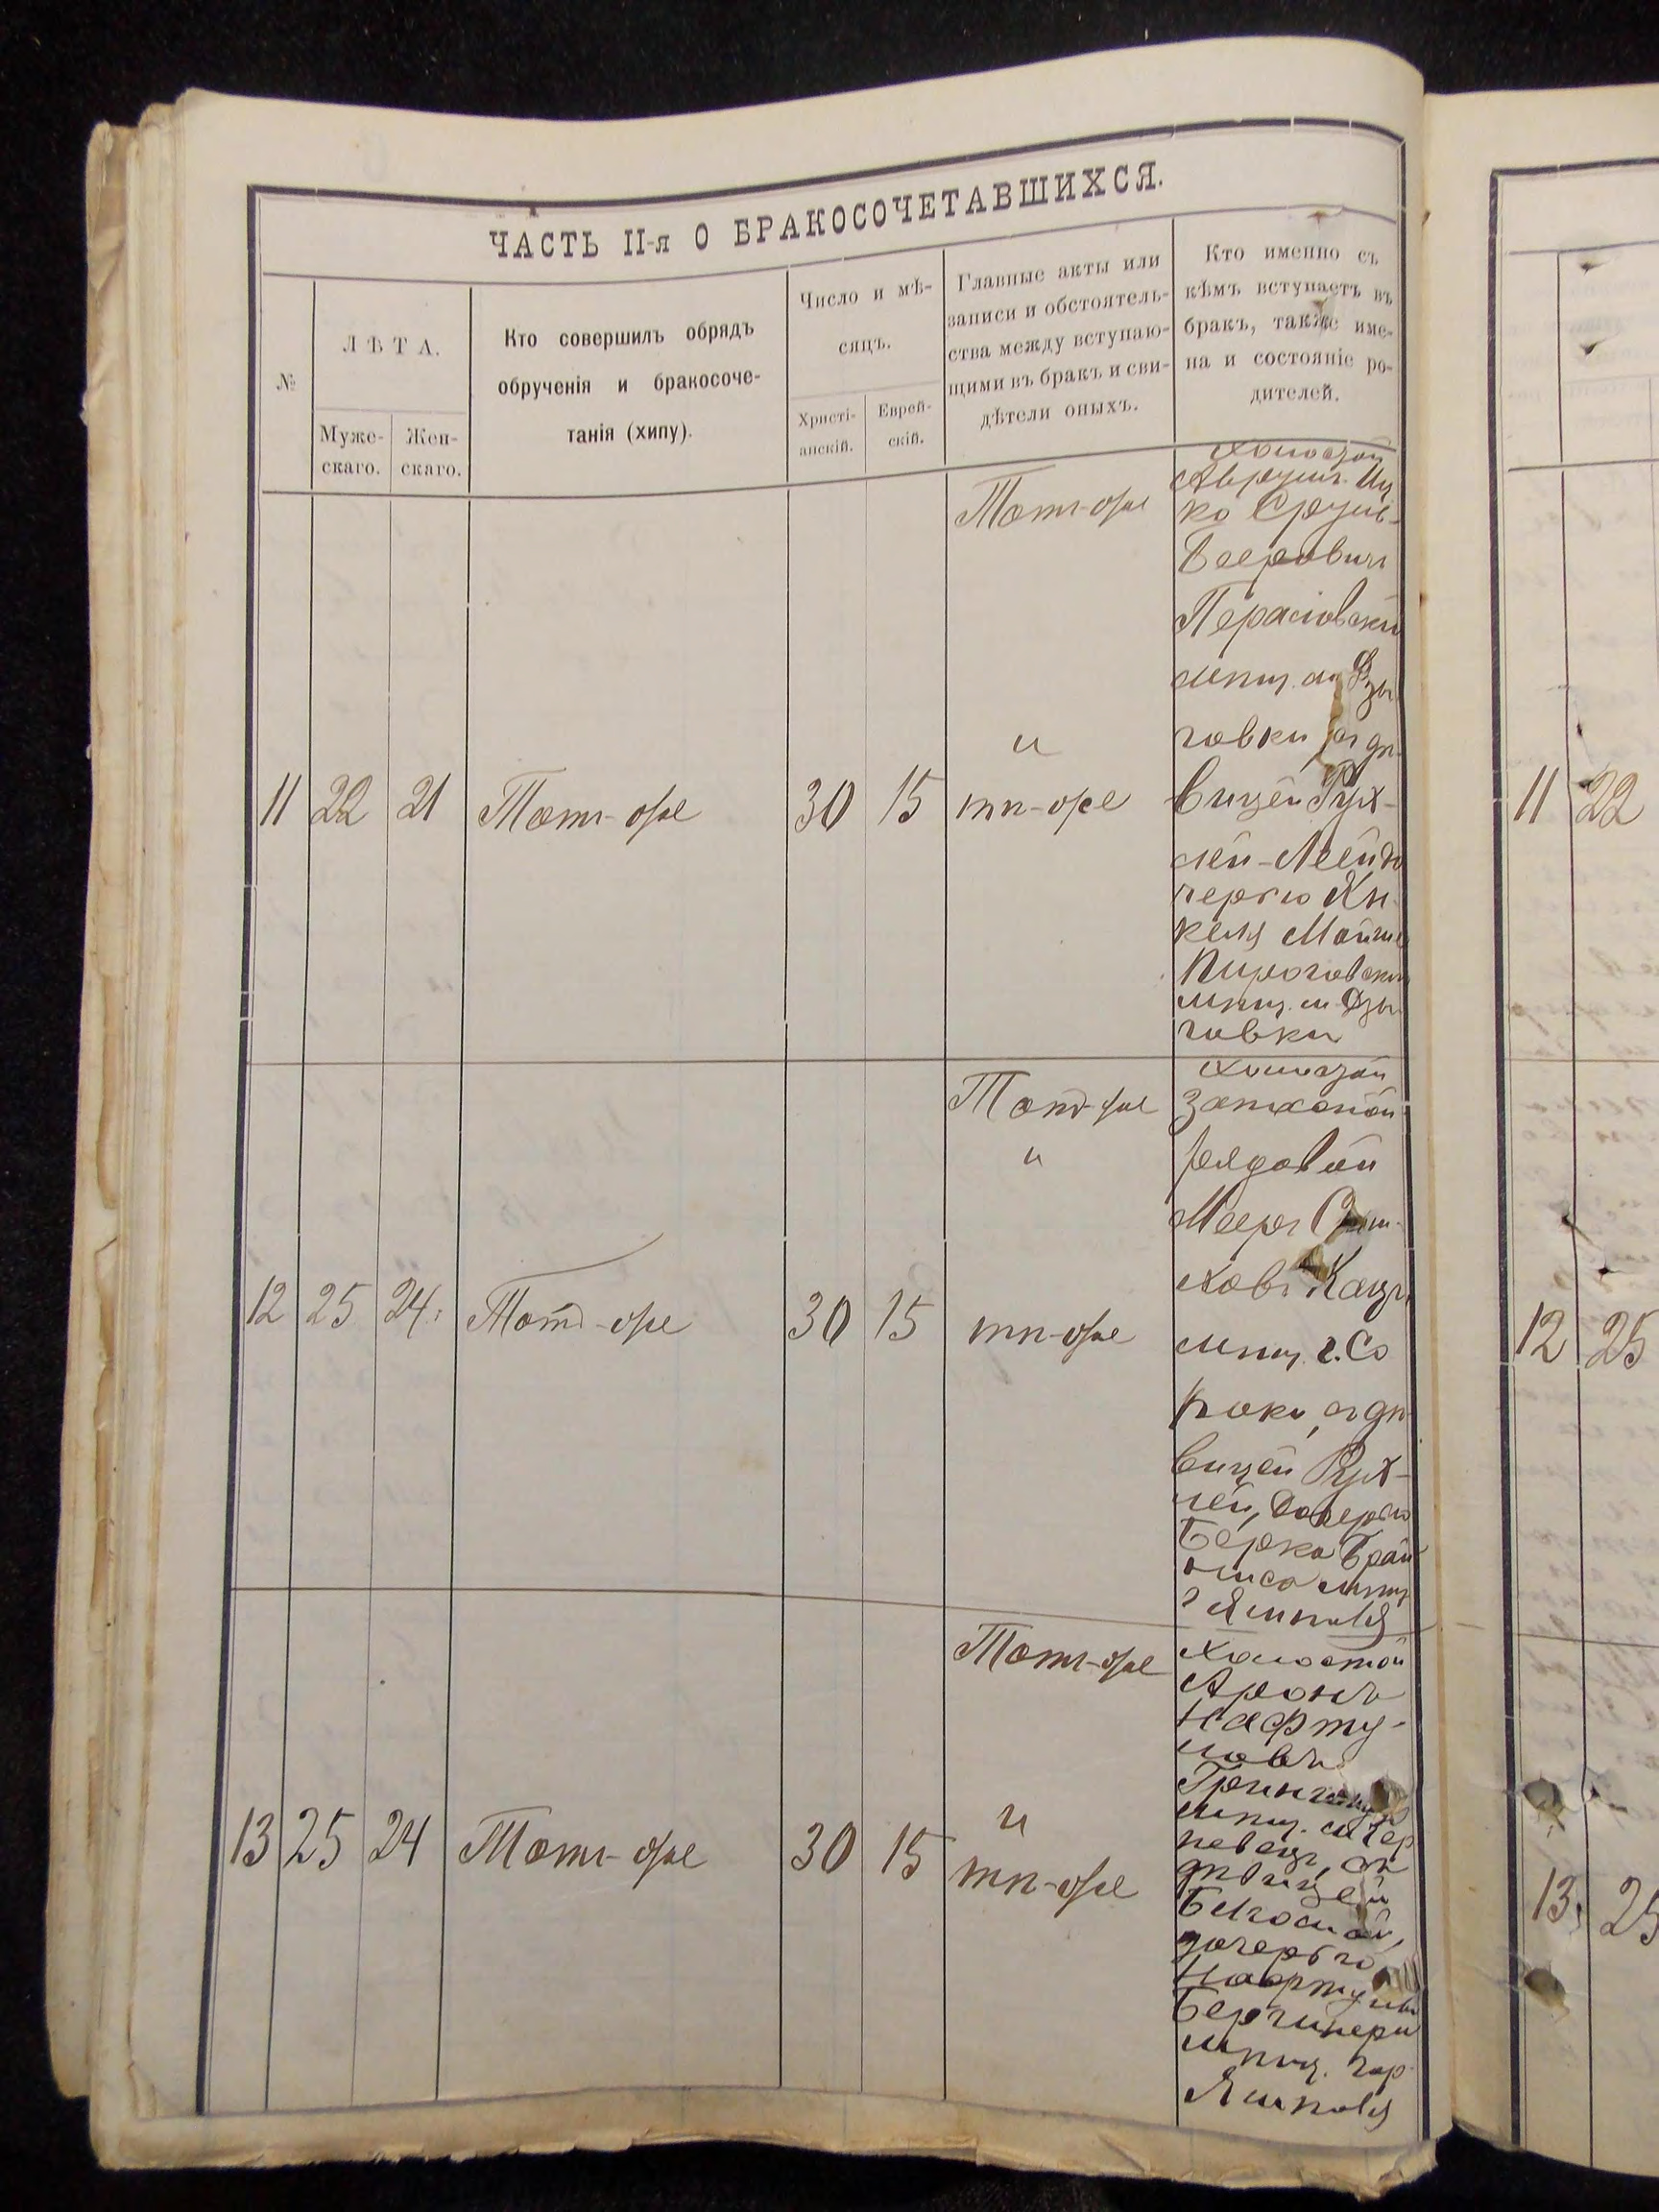 ЧАСТЬ II-я О БРАКОСОЧЕТАВШИХСЯ.
№
ЛѢТА.
Муже-
скаго.
Жен-
скаго.
Кто совершилъ обрядъ
обрученія и бракосоче-
танія (хипу).
Число и мѣ-
сяцъ.
Христі-
анскій.
Еврей-
скій.
Главные акты или
записи и обстоятель-
ства между вступаю-
щими въ бракъ и сви-
дѣтели оныхъ.
Кто именно съ
кѣмъ вступаетъ въ
бракъ, также име-
на и состояніе ро-
дителей.
11 22 21 Тотъ-же 30 15
Тотъ-же
и
тѣ-же
Холостой
Аврумъ Иц
ко Сруль-
Беровичъ
мѣщ. м. Дзы
говки, съ дѣ-
вицей Рух-
лей-Леей до
черью Ян-
келя Мошко
Пироговскаго
мѣщ. м. Дзы
говки
12 25 24 Тотъ-же 30 15
Тотъ-же
и
тѣ-же
Холостой
запасной
рядовой
Мееръ
ховъ Кацъ
мѣщ. г. Со
роки, съ дѣ-
вицей Рух-
лей, дочерью
Берка
мѣщ
г Ямполя
13 25 24 Тотъ-же 30 15
Тотъ-же
и
тѣ-же
Холостой
Аронъ
Нафту-
ловъ
мѣщ. м. Чер
невецъ, съ
дѣвицей
дочерью
Нафтулы
мѣщ. гор.
Ямполя
11 22
12 25
13 25